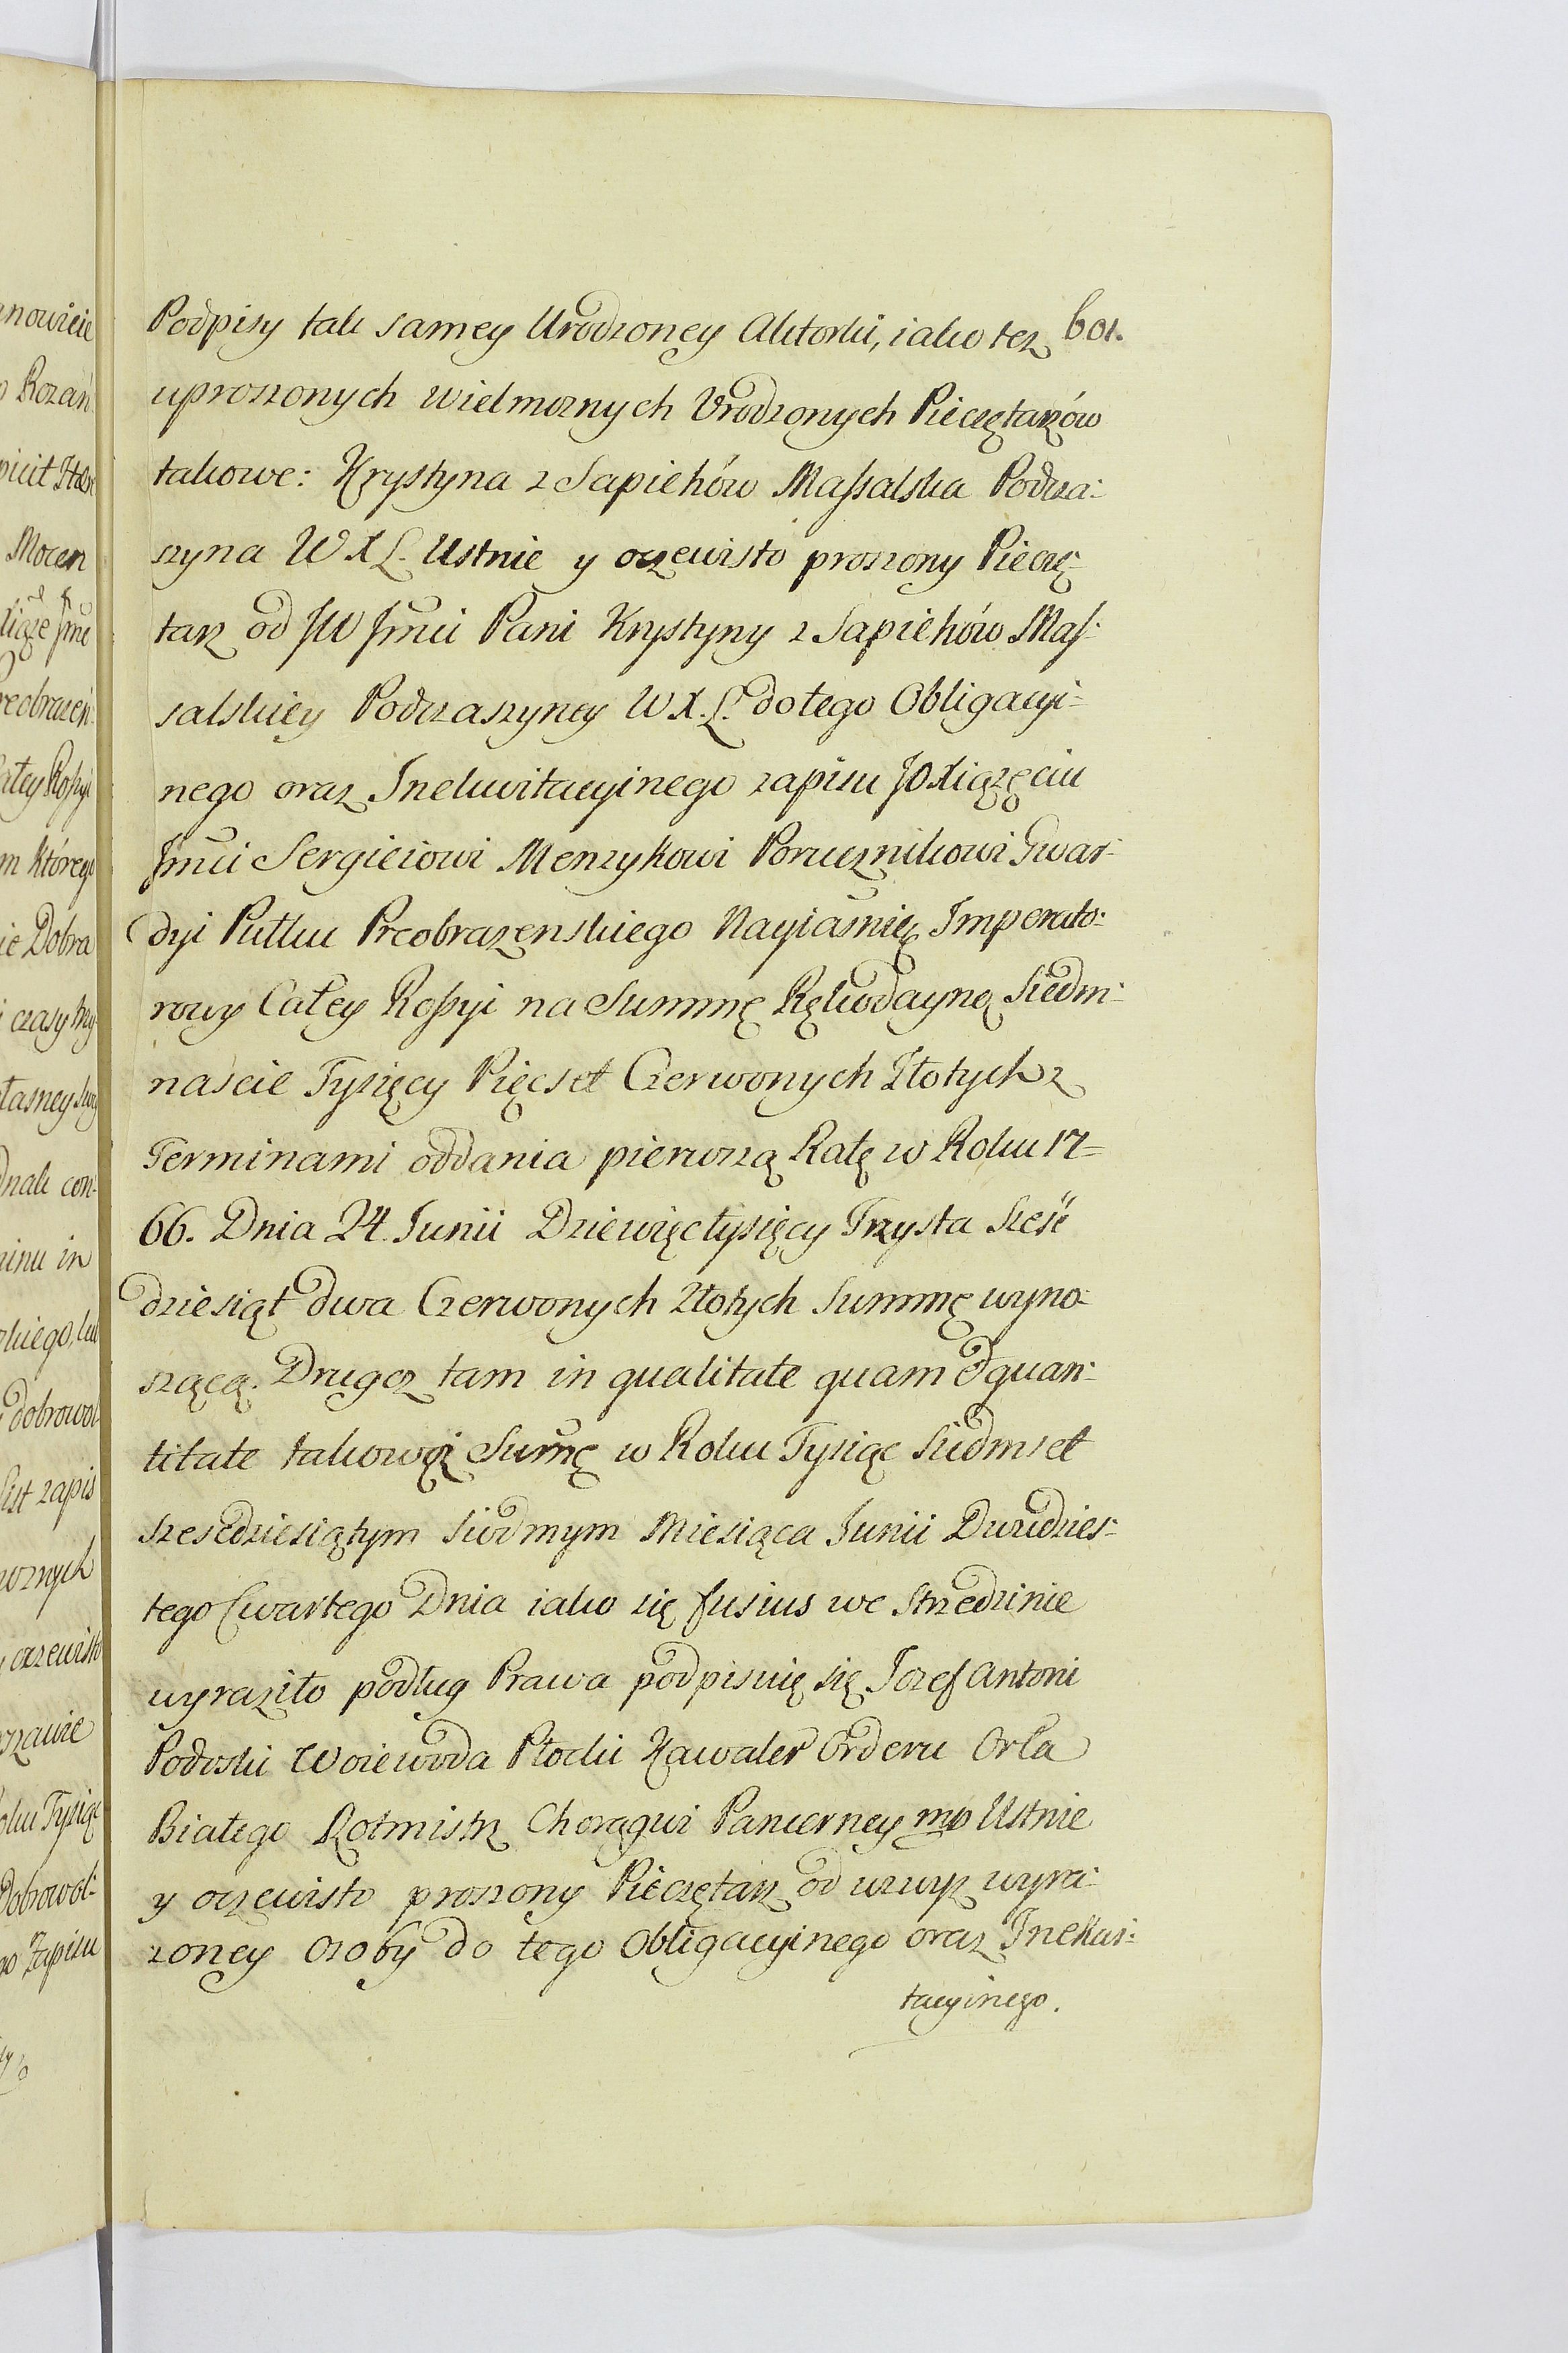 601.
Podpisy tak samey Urodzoney Aktorki, iako tez
uproszonych wielmoznych Urodzonych Pieczętarzów
takowe: Krystyna z Sapiehów Massalska Podcza:
szyna W X L. Ustnie y oczewisto proszony Pieczę:
tarz od JW Jmci Pani Krystyny z Sapiehów Mas:
salskiey Podczaszyney W. X. L. do tego Obligacyi:
nego oraz Inekwitacyinego zapisu JO Xiązęciu
Jmci Sergieiowi Menzykowi Porucznikowi Gwar:
dyi Pułku Preobrazenskiego Nayiaśnię Imperato:
rowy Całey Rossyi na Summę Rękodayną Siedm:
naście Tysięcy Pięcset Czerwonych Złotych z
Terminami oddania pierwszą Ratę w Roku 17=
66. Dnia 24. Junii Dziewięc tysięcy Trzysta Sześć
dziesiąt dwa Czerwonych Złotych Summę wyno:
szącą. Drugez tam in qualitate quam & quan:
titate takowąż Sumę w Roku Tysiąc Siedmset
szescdziesiątym siodmym Miesiąca Junii Dwudzies:
tego Czwartego Dnia iako się fusius we Strzedzinie
wyraziło podług Prawa podpisuię się Jozef Antoni
Podoski Woiewoda Płocki Kawaler Orderu Orła
Białego Rotmistrz Chorągwi Pancerney mp Ustnie
y oczewisto proszony Pieczętarz od wzwyz wyra:
zoney Osoby do tego Obligacyinego oraz Inekwi:
tacyinego.
anowicie
Mocen
ie Dobra
zapis
Tysiąc
Zapisu